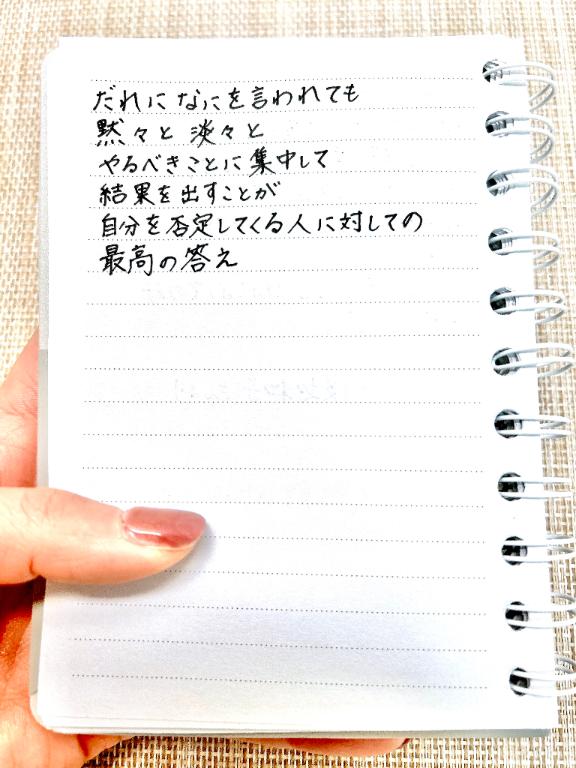 だれに なにを言われても
黙々と 淡々と
やるべきことに集中して
結果を出すことが
自分を否定してくる人に対しての
最高の答え